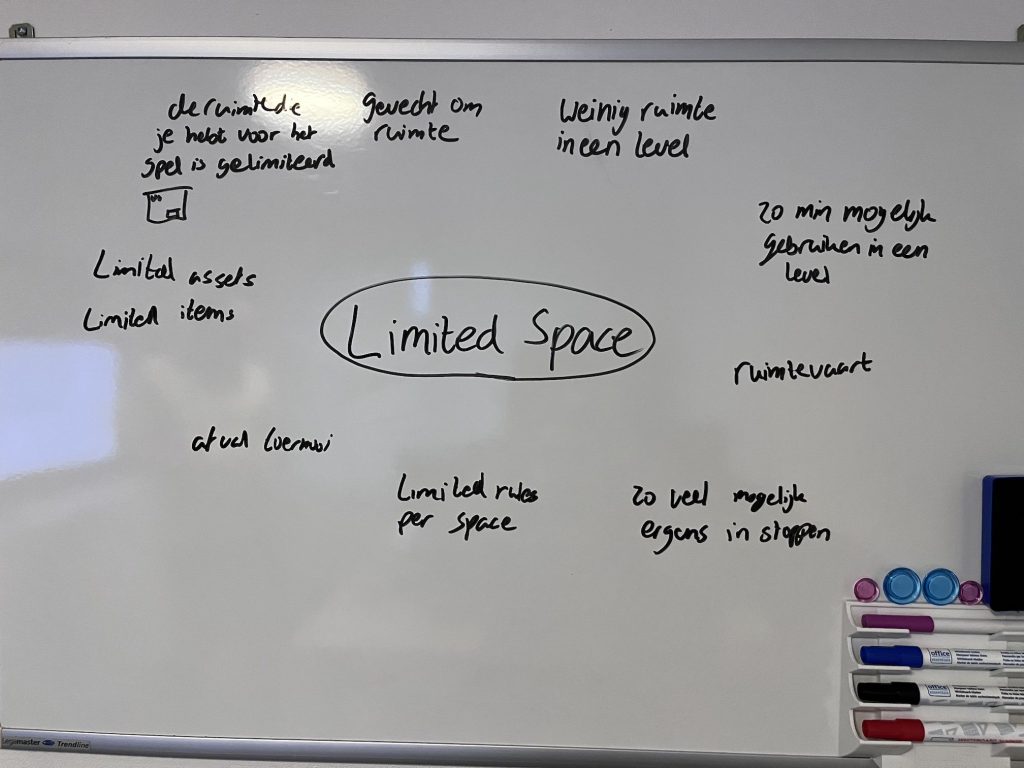 de ruimte de
je hebt voor het
spel is gelimiteerd
gevecht om
ruimte
Weinig ruimte
in een level
zo min mogelijk
gebruiken in een
level
Limited assets
Limited items
Limited Space
ruimtevaart
afval
Limited rules
per space
zo veel mogelijk
ergens in stoppen
Legamaster Trendline
office
office